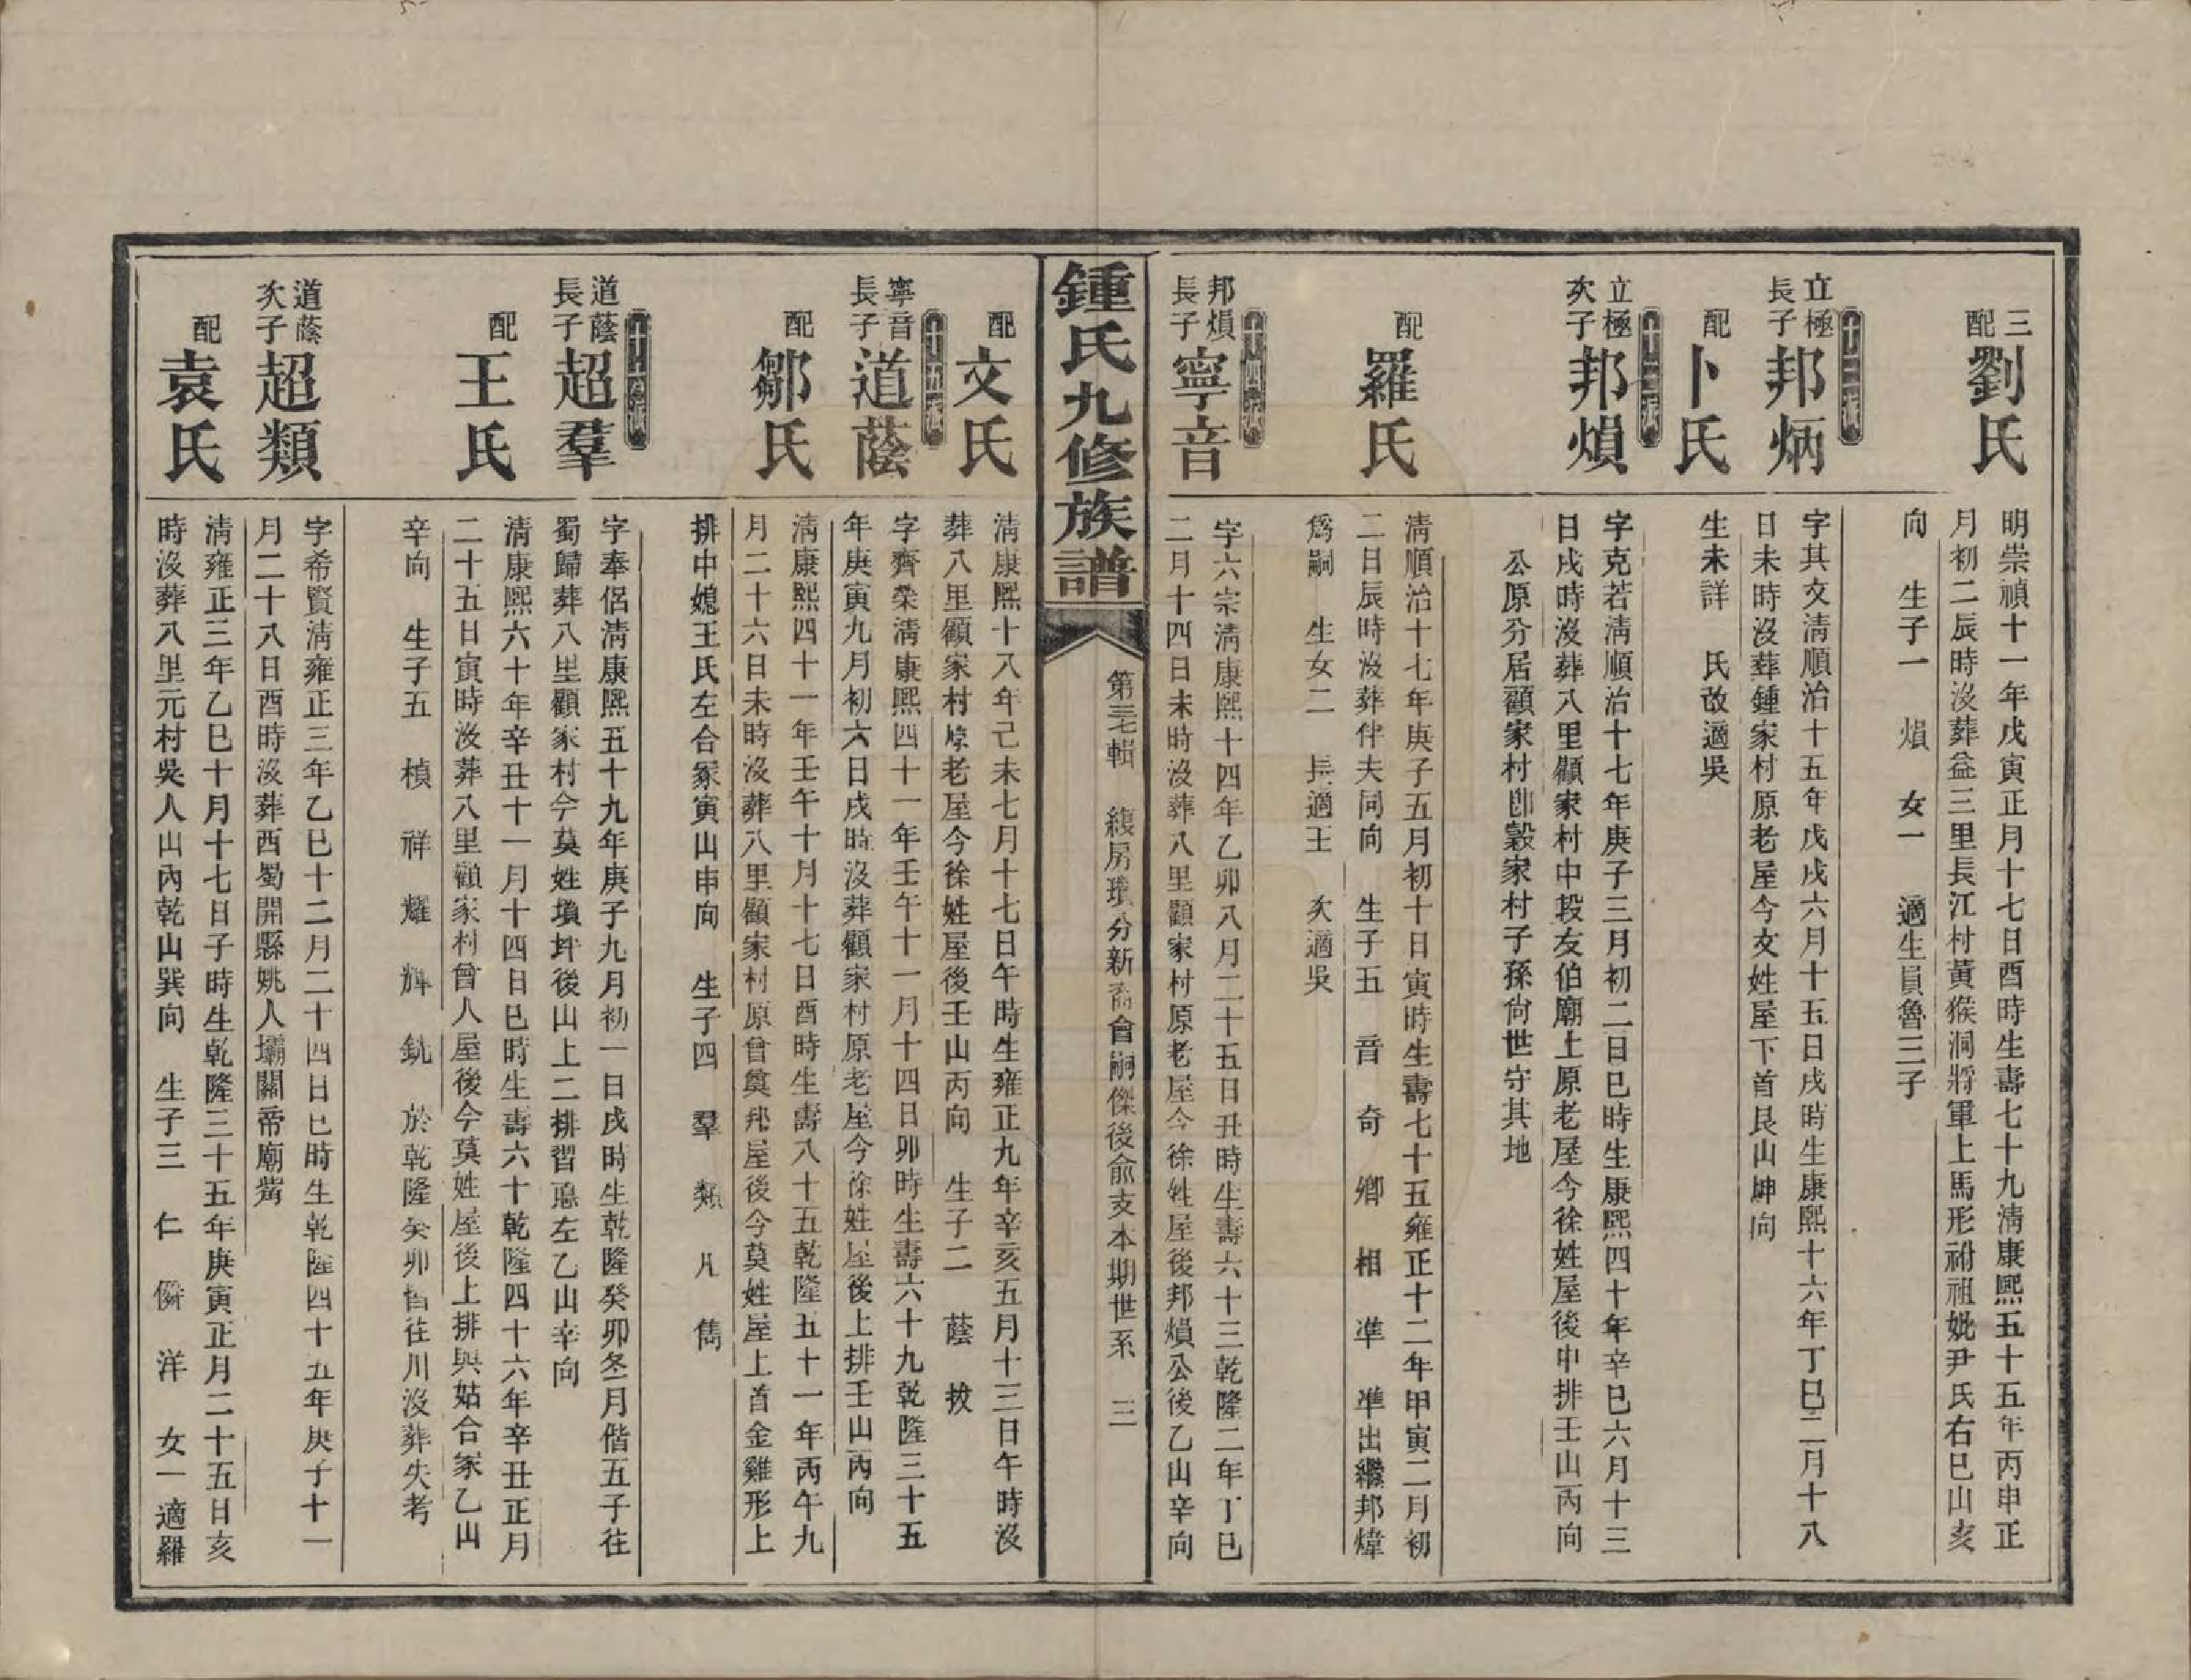 三配劉氏
明崇禎十一年戊寅正月十七日酉時生壽七十九淸康熙五十五年丙申正
月初二辰時沒葬益三里長江村黃猴洞將軍上馬形祔祖妣尹氏右巳山亥
向 生子一 熉 女一 適生員魯三子
十三派
立極長子邦炳
字其文淸順治十五年戊戌六月十五日戌時生康熙十六年丁巳二月十八
日未時沒葬鍾家村原老屋今文姓屋下首艮山坤向
配卜氏
生未詳 氏改適吳
十三派
立極次子邦熉
字克若淸順治十七年庚子三月初二日巳時生康熙四十年辛巳六月十三
日戌時沒葬八里顧家村中段友伯廟上原老屋今徐姓屋後中排壬山丙向
公原分居顧家村卽穀家村子孫尙世守其地
配羅氏
淸順治十七年庚子五月初十日寅時生壽七十五雍正十二年甲寅二月初
二日辰時沒葬伴夫同向 生子五 音 奇 鄉 相 準 準出繼邦煒
爲嗣 生女二 長適王 次適吳
十四派
邦熉長子寧音
字六宗淸康熙十四年乙卯八月二十五日丑時生壽六十三乾隆二年丁巳
二月十四日未時沒葬八里顧家村原老屋今徐姓屋後邦熉公後乙山辛向
鍾氏九修族譜
第三七輯 複房瓚分新喬會嗣傑後俞支本期世系 三
配文氏
淸康熙十八年己未七月十七日午時生雍正九年辛亥五月十三日午時沒
葬八里顧家村原老屋今徐姓屋後壬山丙向 生子二 蔭 拔
十五派
寧音長子道蔭
字齊榮淸康熙四十一年壬午十一月十四日卯時生壽六十九乾隆三十五
年庚寅九月初六日戌時沒葬顧家村原老屋今徐姓屋後上排壬山丙向
配鄒氏
淸康熙四十一年壬午十月十七日酉時生壽八十五乾隆五十一年丙午九
月二十六日未時沒葬八里顧家村原曾奠邦屋後今莫姓屋上首金雞形上
排中媳王氏左合冢寅山申向 生子四 羣 類 凡 儁
十六派
道蔭長子超羣
字奉侶淸康熙五十九年庚子九月初一日戌時生乾隆癸卯冬月偕五子往
蜀歸葬八里顧家村今莫姓墳坪後山上二排習聰左乙山辛向
配王氏
淸康熙六十年辛丑十一月十四日巳時生壽六十乾隆四十六年辛丑正月
二十五日寅時沒葬八里顧家村曾人屋後今莫姓屋後上排與姑合冢乙山
辛向 生子五 楨 祥 耀 輝 銑 於乾隆癸卯偕往川沒葬失考
道蔭次子超類
字希賢淸雍正三年乙巳十二月二十四日巳時生乾隆四十五年庚子十一
月二十八日酉時沒葬西蜀開縣姚人壩關帝廟嵜
配袁氏
淸雍正三年乙巳十月十七日子時生乾隆三十五年庚寅正月二十五日亥
時沒葬八里元村吳人山內乾山巽向 生子三 仁 僯 洋 女一適羅